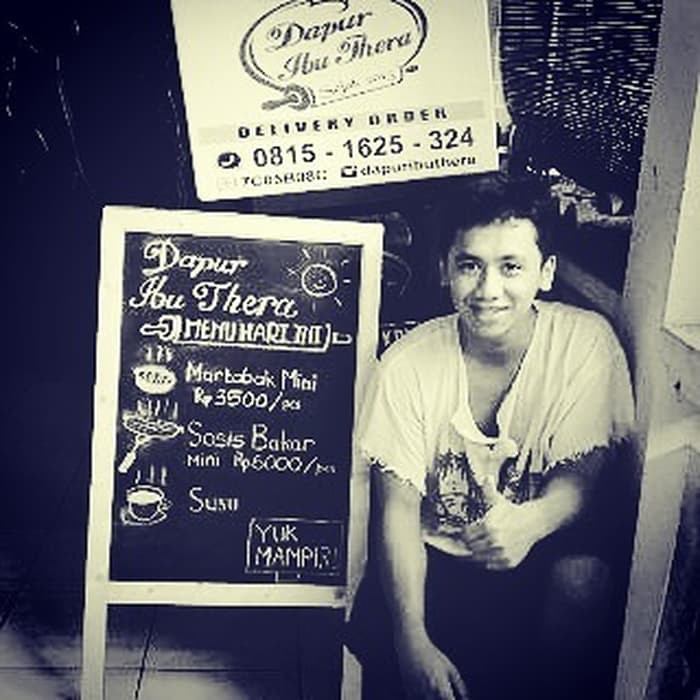 Dapur
Ibu Thera
DELIVERY ORDER
0815 - 1625 - 324
dapuributhera
Dapur
Ibu Thera
MENU HARI INI
Martabak Mini
Rp3500/pcs
Sosis Bakar
MINI Rp6000/pcs
Susu
YUK
MAMPIR!